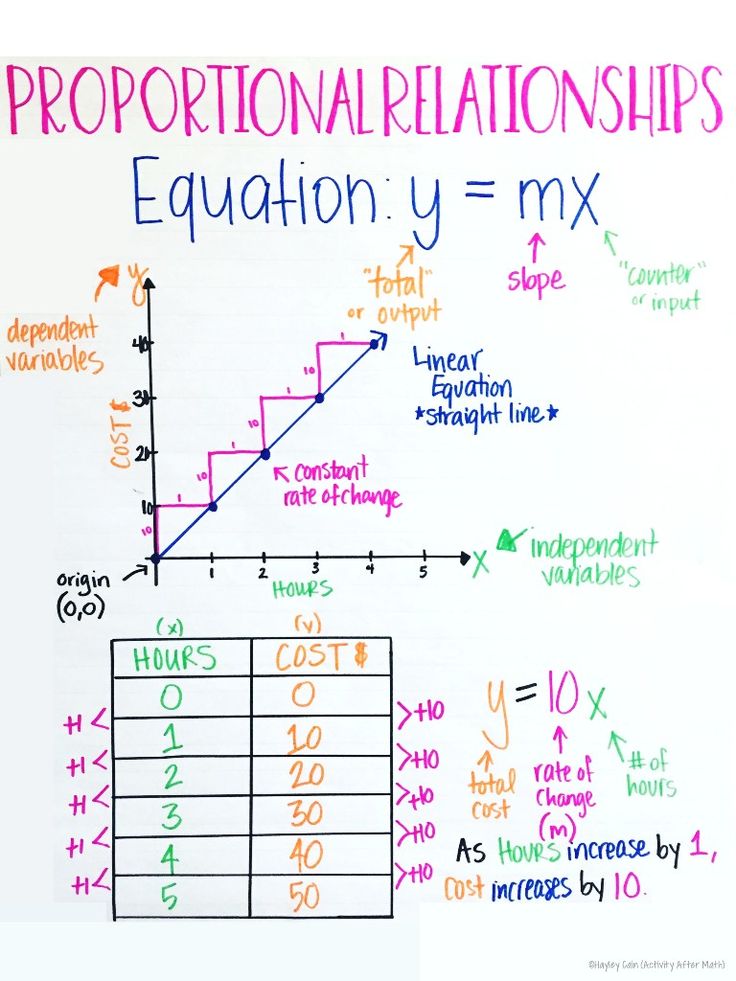 PROPORTIONAL RELATIONSHIPS
Equation: y = mx
"total"
or output
slope
"counter"
or input
y
dependent
variables
COST $
40
30
20
10
1
10
1
10
1
10
1
10
Linear
Equation
*straight line*
constant
rate of change
origin
(0,0)
1 2 3 4 5
HOURS
x
independent
variables
(x) (y)
HOURS COST $
0 0
1 10
2 20
3 30
4 40
5 50
+1
+1
+1
+1
+1
+10
+10
+10
+10
+10
y = 10x
total
cost
rate of
change
(m)
# of
hours
As HOURS increase by 1,
cost increases by 10.
©Hayley Cain (Activity After Math)